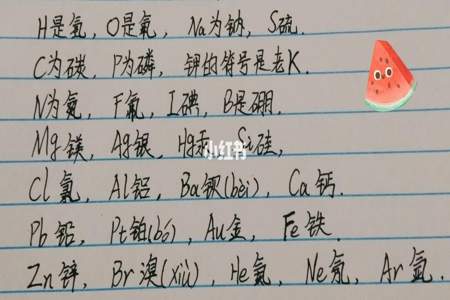 H是氢，O是氧，Na为钠，S硫.
C为碳，P为磷，钾的符号是老K.
N为氮，F氟，I碘，B是硼.
Mg镁，Ag银，Hg汞，Si硅，
小红书
Cl氯，Al铝，Ba钡(bèi)，Ca钙.
Pb铅，Pt铂(bó)，Au金，Fe铁.
Zn锌，Br溴(xiù)，He氦，Ne氖，Ar氩.